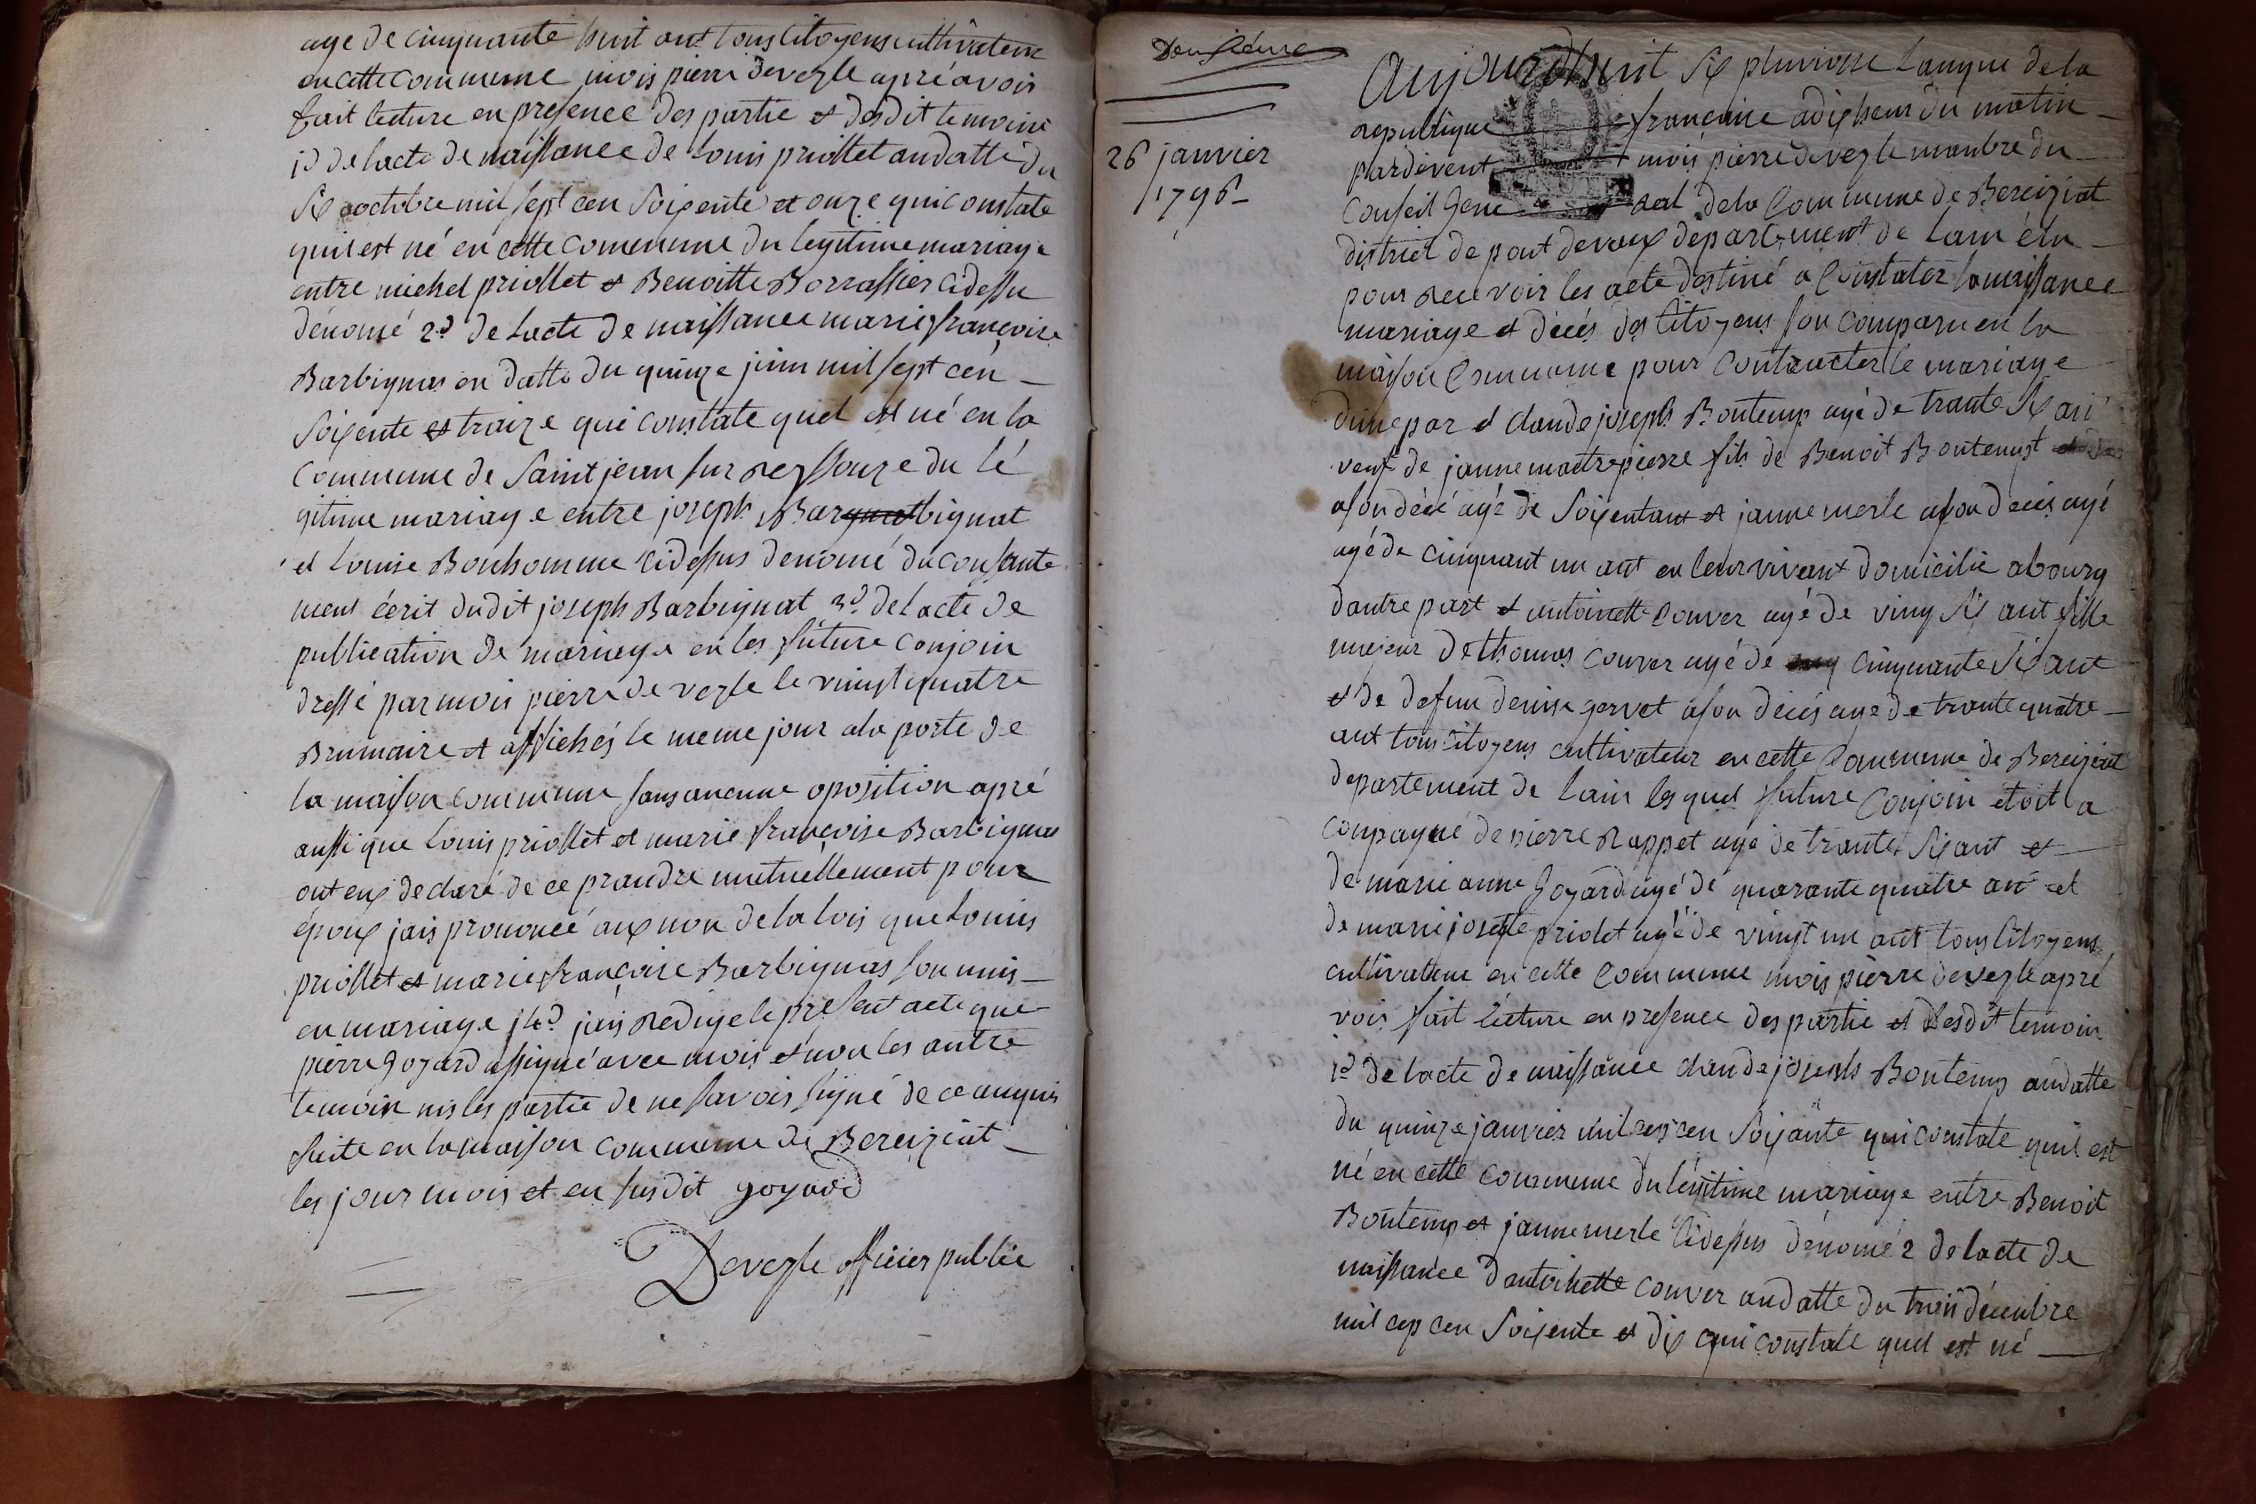 age de cinquante huit ant tous citoyens cultivateur
en cette commeme mois pierre devesle apré avois
fait lecture en presence des partie et desdit temoins
1d de lacte de naissance de Louis priollet audatte du
Six octobre mil sept cen Soixente et onze qui constate
quil est né en cette comemune du legitime mariage
entre michel priollet et Benoitte Borrassier cidessu
dénomé 2d de Lacte de naissance marie françoise
Barbignas en datte du quinze juin mil sept cén
Soixente et traize qui constate quel est né en la
commune de Saint jean sur ressouze du lé
gitime mariage entre joseph Barbignat
et Louise Bonhomme cidessus denomé du consante
ment écrit dudit joseph Barbignat 3d de lacte de
publication de mariage en les future conjoin
dressé par mois pierre devesle le vingt quatre
Brumaire et affichés le meme jour ala porte de
la maison commune sans aucunne oposition apré
aussi que Louis priollet et marie françoise Barbignas
ont eux declaré de ce prandre mutuellement pour
époux jais prononcé aux non de la lois que Louis
priollet et marie françoise Barbignas son unis
en mariage 4d jais redige le present acte que
pierre goyard assigné avec mois et non les autre
temoin nis les partie de ne savois signé de ce anquis
faite en la maison commeme de Bereiziat
les jour mois et en susdit goyard
Devesle officier public
Deuxième
26 janvier
1796
Aujourdhuit Six pluviosse Lanque de la
republique française adix heur du matin
pardevent mois pierre devesle manbre du
Conseil Gene ral de la Commune de Bereiziat
district de pont devaux departement de Lain élu
pour recevoir les acte destiné a Constater lanaissance
mariage et décés des Citoyens son comparu en la
maison Commune pour Contracter le mariage
dune par et claude joseph Bontemp agé de trante Six an
veuf de janne maitrepierre fils de Benoit Bontempt
ason décé agé de Soixentant et janne merle ason decés agé
agé de cinquant un ant en leur vivant domicilié abourg
dautre part et antoinette Couver agé de ving Six ant fille
majeur de thomas Couver agé de cinquante Six ant
et de defun denise gervet ason décés age de trante quatre
ant tous citoyens cultivateur en cette Commune de Bereiziat
departement de Lain lesquel future Conjoin etoit a
coupagné de pierre Rappet age de trante Six ant et
de marie anne Goyard agé de quarante quatre an et
de marie josette priolet agé de vingt un ant tous Citoyens
cultivateur en cette Commune mois pierre devesle apré
vois fait lécture en presence des partie et desdit temoin
1d de lacte de naissance claude joseph Bontemp audatte
du quinze janvier mil sep cen Soixante qui constate quil est
né en cette commune du légitime mariage entre Benoit
Bontemp et janne merle cidessus dénomé 2 de lacte de
naissance dantoinette couver audatte du trois décenbre
mil cep cen Soixente et dix qui constate quel est né